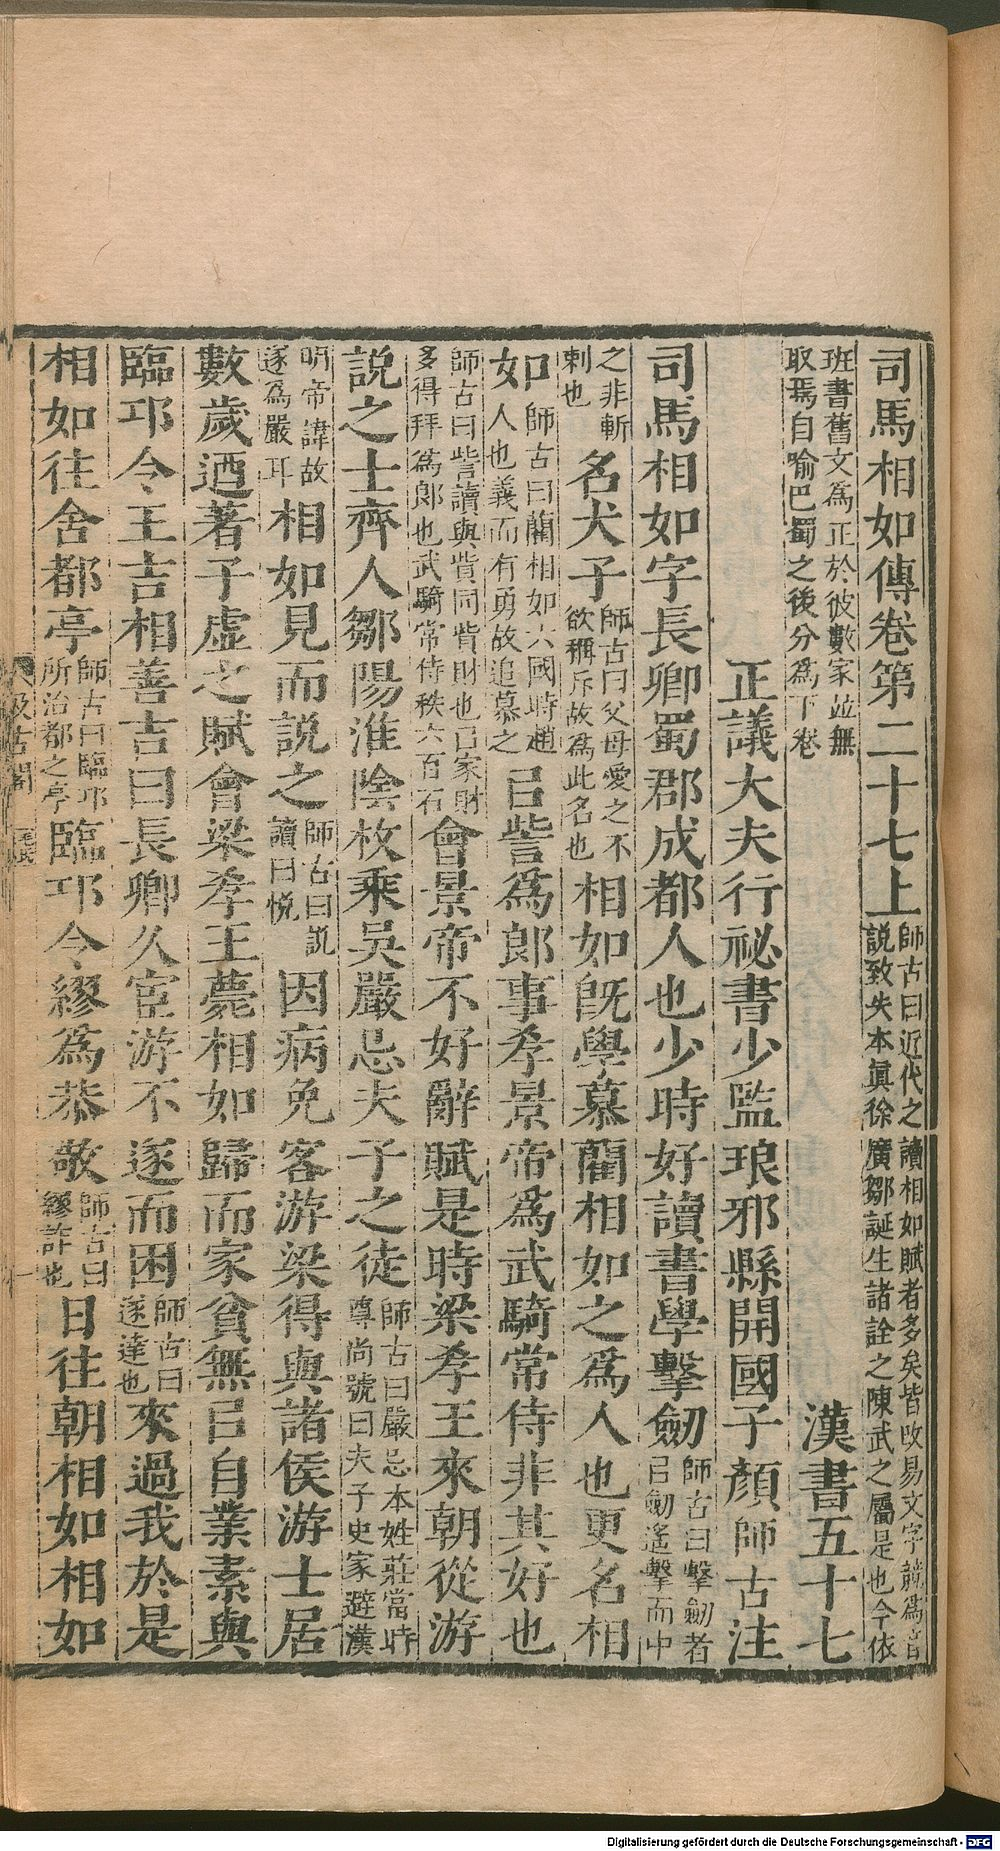 司馬相如傳卷第二十七上師古曰近代之讀相如賦者多矣皆改易文字競爲音說致失本眞徐廣鄒誕生諸詮之陳武之屬是也今依
班書舊文爲正於彼數家並無取焉自喻巴蜀之後分爲下卷 漢書五十七
正議大夫行祕書少監琅邪縣開國子顏師古注
司馬相如字長卿蜀郡成都人也少時好讀書學擊劒師古曰擊劒者㠯劒遙擊而中
之非斬刺也名犬子師古曰父母愛之不欲稱斥故爲此名也相如旣學慕藺相如之爲人也更名相
如師古曰藺相如六國時趙人也義而有勇故追慕之㠯訾爲郎事孝景帝爲武騎常侍非其好也
師古曰訾讀與貲同貲財也㠯家財多得拜爲郎也武騎常侍秩六百石會景帝不好辭賦是時梁孝王來朝從游
說之士齊人鄒陽淮陰枚乘吳嚴忌夫子之徒師古曰嚴忌本姓莊當時尊尚號曰夫子史家避漢
明帝諱故遂爲嚴耳相如見而說之師古曰說讀曰悅因病免客游梁得與諸侯游士居
數歲迺著子虛之賦會梁孝王薨相如歸而家貧無㠯自業素與
臨邛令王吉相善吉曰長卿久宦游不遂而困師古曰遂達也來過我於是
相如往舍都亭師古曰臨邛所治都之亭臨邛令繆爲恭敬師古曰繆詐也日往朝相如相如
汲古閣
毛氏
Digitalisierung gefördert durch die Deutsche Forschungsgemeinschaft - DFG